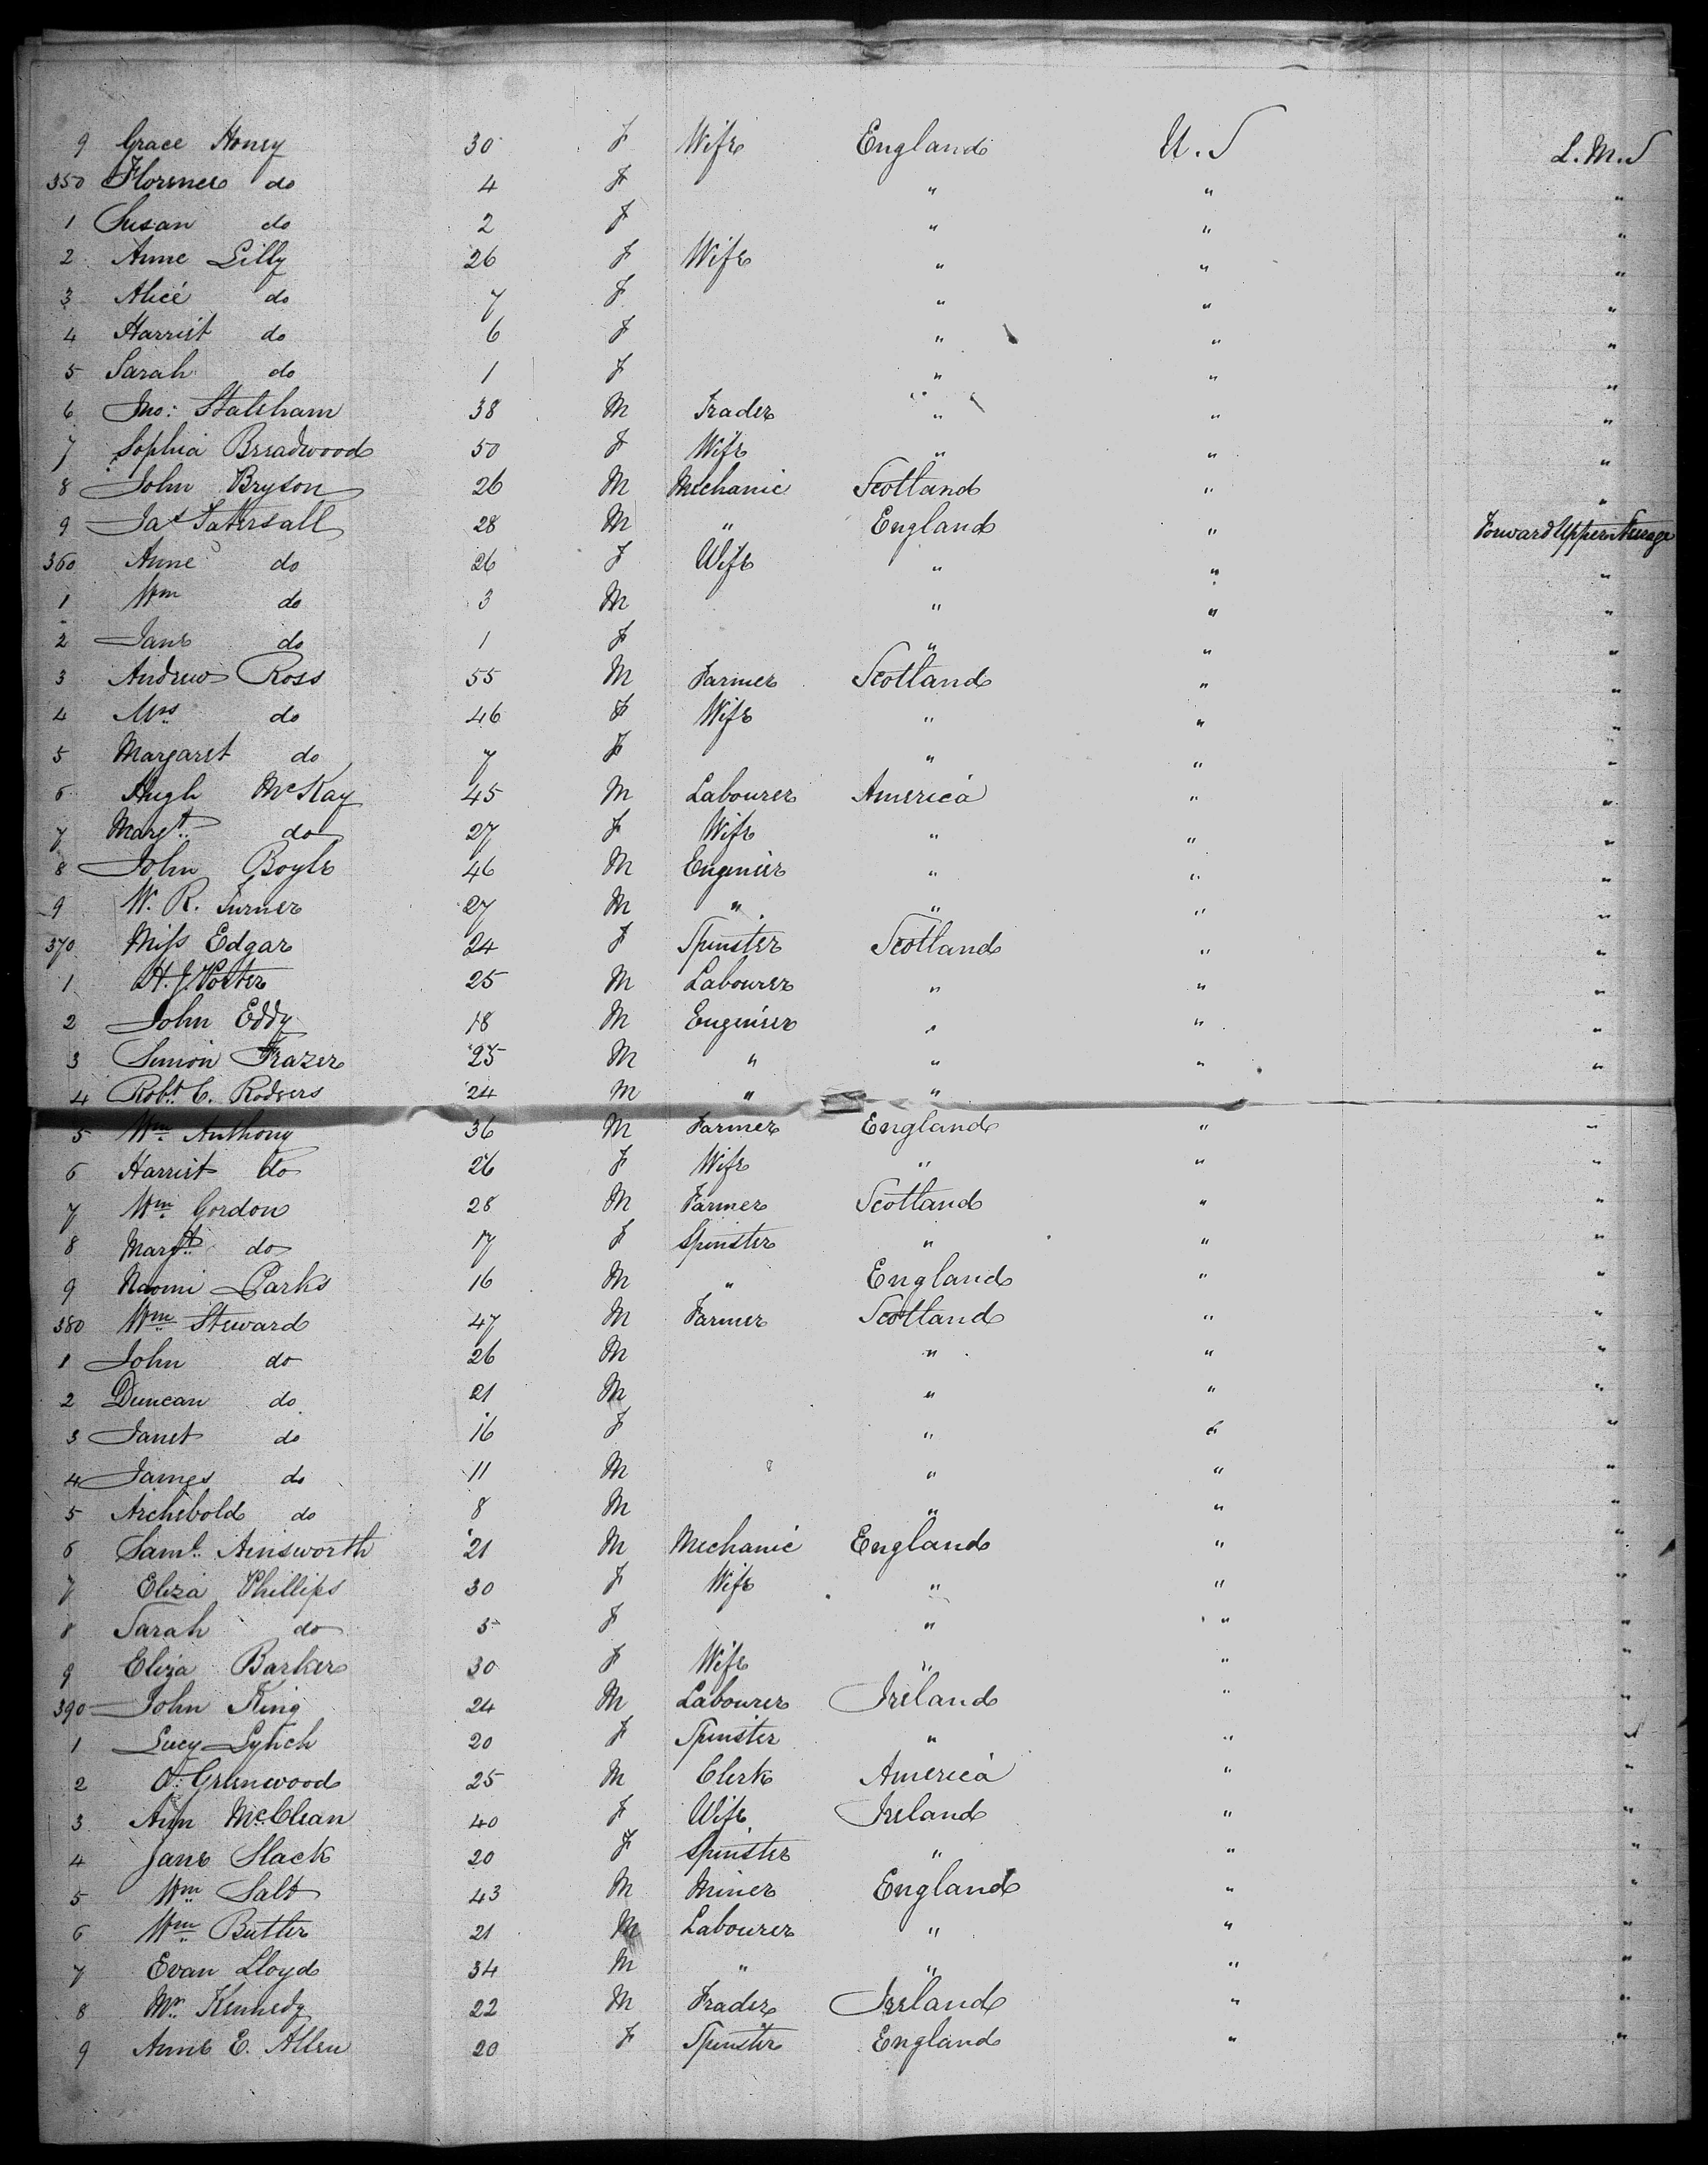 9 Grace Honey 30 F Wife England U.S L.M.S
350 Florence do 4 F " " "
1 Susan do 2 F " " "
2 Anne Lilly 26 F Wife " " "
3 Alice do 7 F " " "
4 Harriet do 6 F " " "
5 Sarah do 1 F " " "
6 Jno: Stalsham 38 M Trader " " "
7 Sophia Breadwood 50 F Wife " " "
8 John Bryson 26 M Mechanic Scotland " "
9 Jas Tatersall 28 M " England " Forward Upper Steerage
360 Anne do 26 F Wife " " "
1 Wm do 3 M " " "
2 Jane do 1 F " " "
3 Andrew Ross 55 M Farmer Scotland " "
4 Mrs do 46 F Wife " " "
5 Margaret do 7 F " " "
6 Hugh McKay 45 M Labourer America " "
7 Margt do 27 F Wife " " "
8 John Boyle 46 M Engenier " " "
9 W. R. Turner 27 M " " " "
370 Miss Edgar 24 F Spinster Scotland " "
1 H. J. Porter 25 M Labourer " " "
2 John Eddy 18 M Engenier " " "
3 Simon Frazer 25 M " " " "
4 Robt C. Rodgers 24 M " "
5 Wm Anthony 36 M Farmer England " "
6 Harriet do 26 F Wife " " "
7 Wm Gordon 28 M Farmer Scotland " "
8 Margt do 17 F Spinster " " "
9 Naomi Parks 16 M " England " "
380 Wm Steward 47 M Farmer Scotland " "
1 John do 26 M " " "
2 Duncan do 21 M " " "
3 Janet do 16 F " " "
4 James do 11 M " " "
5 Archebold do 8 M " " "
6 Saml Ainsworth 21 M Mechanic England " "
7 Eliza Phillips 30 F Wife " " "
8 Sarah do 5 F " " "
9 Eliza Barker 30 F Wife " " "
390 John King 24 M Labourer Ireland " "
1 Lucy Lynch 20 F Spinster " " "
2 Greenwood 25 M Clerk America " "
3 Ann McClean 40 F Wife Ireland " "
4 Jane Slack 20 F Spinster " " "
5 Wm Salt 43 M Miner England " "
6 Wm Butler 21 M Labourer " " "
7 Evan Lloyd 34 M " " " "
8 Mr Kennedy 22 M Trader Ireland " "
9 Anne E. Allen 20 F Spinster England " "